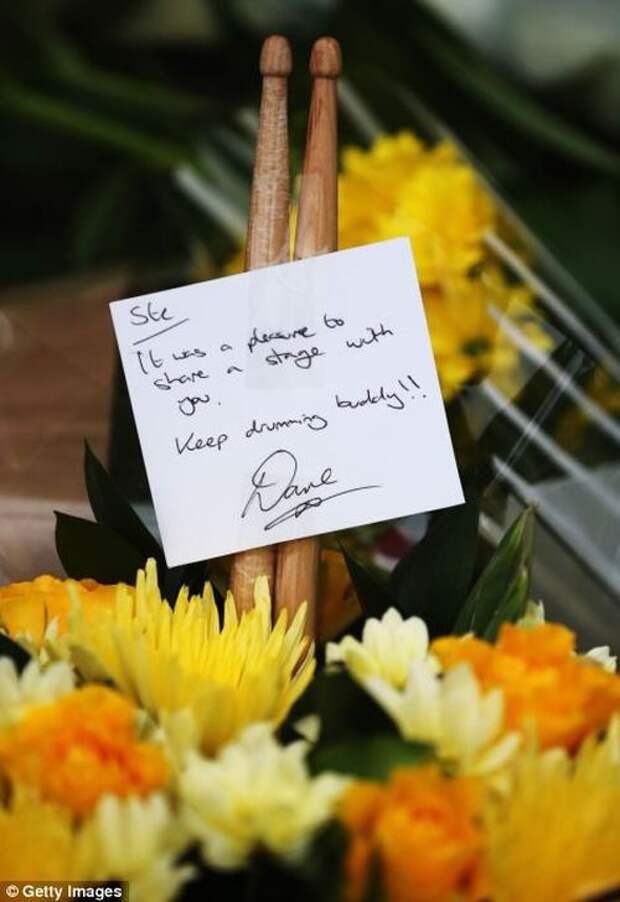 Ste
It was a pleasure to
share a stage with
you.
Keep drumming buddy!!
Dave
© Getty Images